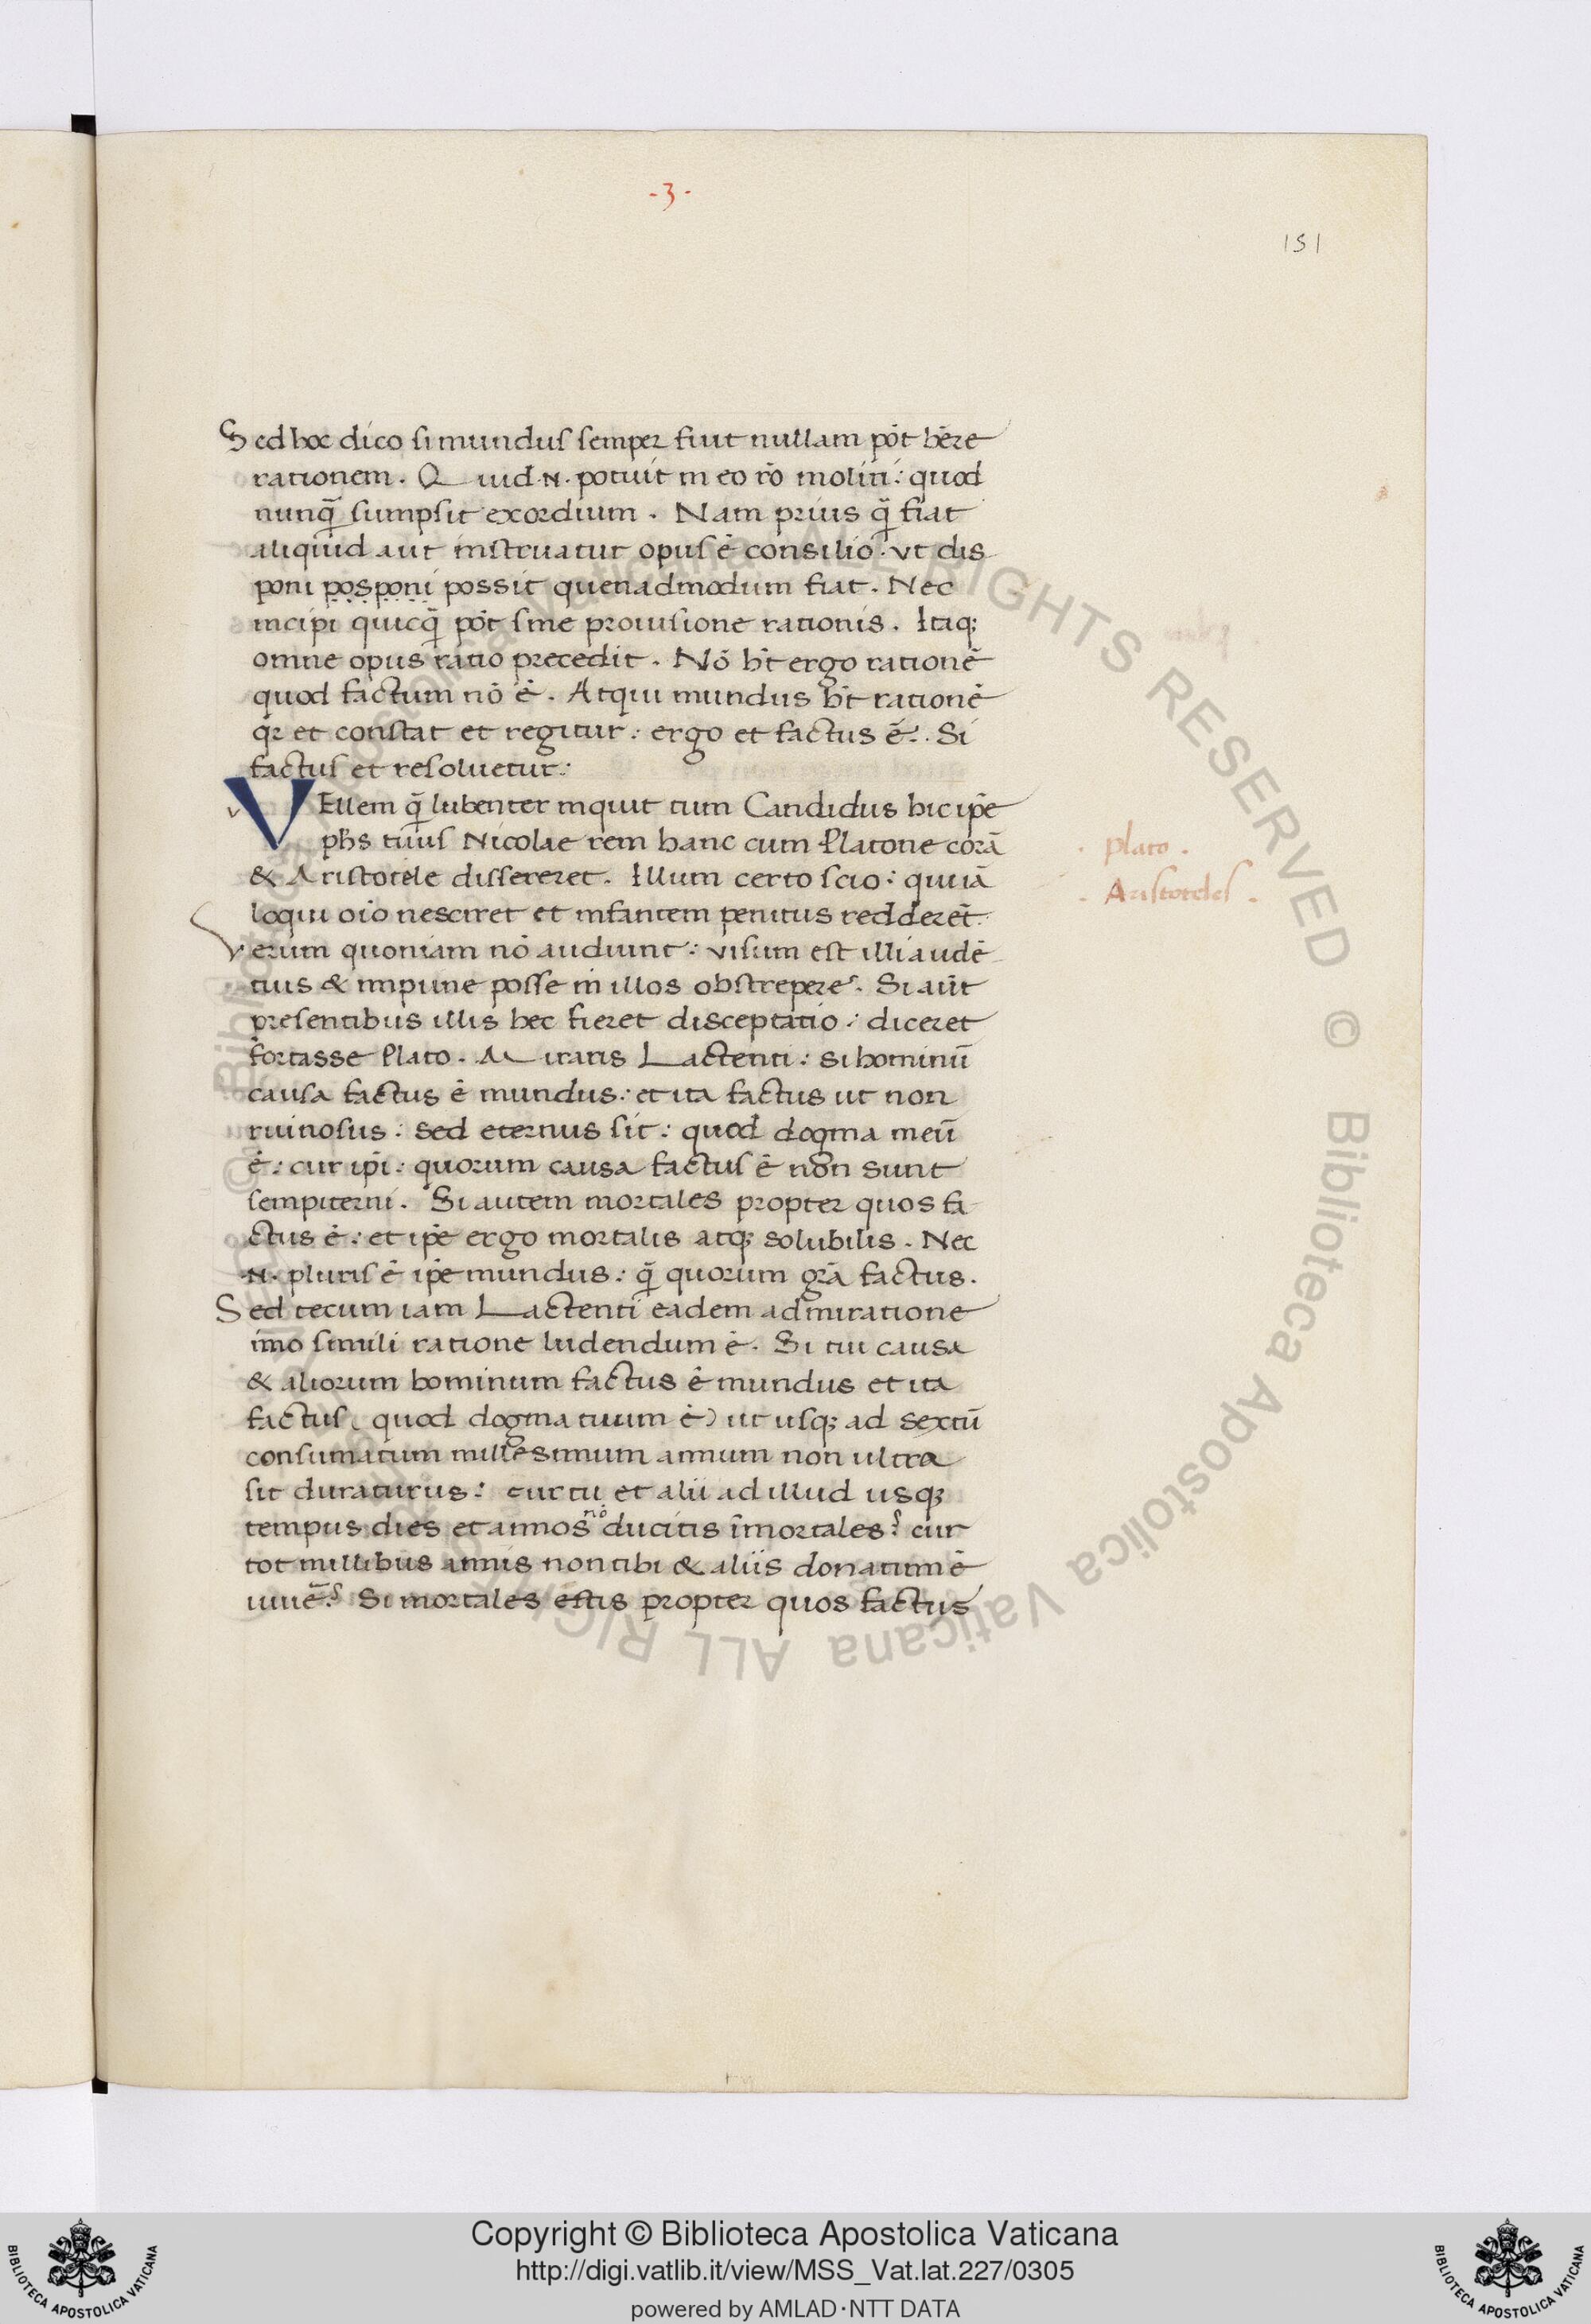 -3-
151
Sed hoc dico si mundus semper fuit nullam pōt hēre
rationem. Quid .N. potuit in eo rō moliri: quod
nunq̄ sumpsit exordium. Nam prius q̄ fiat
aliquid aut instruatur opus ē consilio. vt dis
poni posponi possit quenadmodum fiat. Nec
incipi quicq̄ pōt sine prouisione rationis. Itaq;
omne opus ratio precedit. Nō ht̄ ergo rationē
quod factum nō ē. Atqui mundus ht̄ rationē
qr̄ et constat et regitur: ergo et factus ē: Si
factus et resoluetur:
VEllem q̄ lubenter inquit tum Candidus hic ip̄e
ph̄s tuus Nicolae rem hanc cum Platone corā
& Aristotele dissereret. Illum certo scio: qui iā
loqui oīo nesciret et infantem penitus redderēt.
Verum quoniam nō audiunt: visum est illi audē
tius & impune posse in illos obstrepere. Si aūt
presentibus illis hec fieret disceptatio: diceret
fortasse Plato. Miraris Lactenti: si hominū
causa factus ē mundus: et ita factus ut non
ruinosus: sed eternus sit: quod dogma meū
ē: cur ip̄i: quorum causa factus ē non sunt
sempiterni. Si autem mortales propter quos fa
ctus ē: et ip̄e ergo mortalis atq; solubilis. Nec
.N. pluris ē ip̄e mundus: q̄ quorum grā factus.
Sed tecum iam Lactenti eadem admiratione
imo simili ratione ludendum ē. Si tui causa
& aliorum hominum factus ē mundus et ita
factus (quod dogma tuum ē) ut usq; ad sextū
consumatum millesimum annum non ultra
sit duraturus: cur tu et alii ad illud usq;
tempus dies et annos nō ducitis īmortales? cur
tot millibus annis non tibi & aliis donatum ē
uiuē? Si mortales estis propter quos factus
. plato .
. Aristoteles .
© Biblioteca Apostolica Vaticana ALL RIGHTS RESERVED © Biblioteca Apostolica Vaticana ALL RIGHTS RESERVED
BIBLIOTECA APOSTOLICA VATICANA
Copyright © Biblioteca Apostolica Vaticana
http://digi.vatlib.it/view/MSS_Vat.lat.227/0305
powered by AMLAD·NTT DATA
BIBLIOTECA APOSTOLICA VATICANA